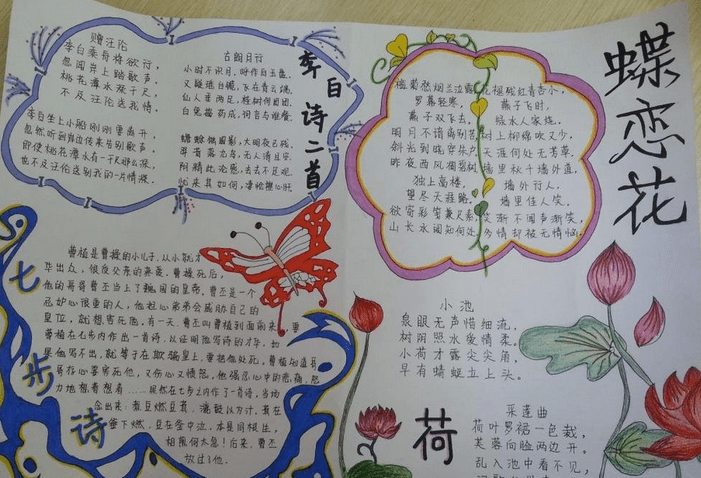 李白诗二首
赠汪伦
李白乘舟将欲行,
忽闻岸上踏歌声。
桃花潭水深千尺,
不及汪伦送我情。
李白坐上小船刚刚要离开,
忽然听到岸边传来告别歌声。
即使桃花潭水有一千尺那么深,
也不及汪伦送别我的一片情深。
古朗月行
小时不识月,呼作白玉盘。
又疑瑶台镜,飞在青云端。
仙人垂两足,桂树何团团。
白兔捣药成,问言与谁餐。
蟾蜍蚀圆影,大明夜已残。
羿昔落九乌,天人清且安。
阴精此沦惑,去去不足观。
忧来其如何,凄怆摧心肝
蝶恋花
槛菊愁烟兰泣露
罗幕轻寒,
燕子双飞去。
明月不谙离别苦
斜光到晓穿朱户
昨夜西风凋碧树
独上高楼,
望尽天涯路。
欲寄彩笺兼尺素
山长水阔知何处
花褪残红青杏小,
燕子飞时,
绿水人家绕。
枝上柳绵吹又少,
天涯何处无芳草。
墙里秋千墙外道,
墙外行人,
墙里佳人笑。
笑渐不闻声渐笑,
多情却被无情恼
七步诗
曹植是曹操的小儿子,从小就才
华出众,很受父亲的亲爱。曹操死后,
他的哥哥曹丕当上了魏国的皇帝。曹丕是一个
忌妒心很重的人,他担心弟弟会威胁自己的
皇位,就想害死他。有一天,曹丕叫曹植到面前来,要
曹植在七步内作出一首诗,以证明他写诗的才华。如
果他写不出,就等于在欺骗皇上,要把他处死。曹植知道哥
哥存心要害死他,又伤心又愤怒。他强忍心中的悲痛,努
力地想着想着……果然在七步之内作了一首诗,当场
念出来:煮豆燃豆萁,漉豉以为汁,萁在
釜下燃,豆在釜中泣,本是同根生,
相煎何太急!后来,曹丕
放过了他.
小池
泉眼无声惜细流,
树阴照水爱情柔。
小荷才露尖尖角,
早有蜻蜓立上头。
荷
采莲曲
荷叶罗裙一色裁,
芙蓉向脸两边开。
乱入池中看不见,